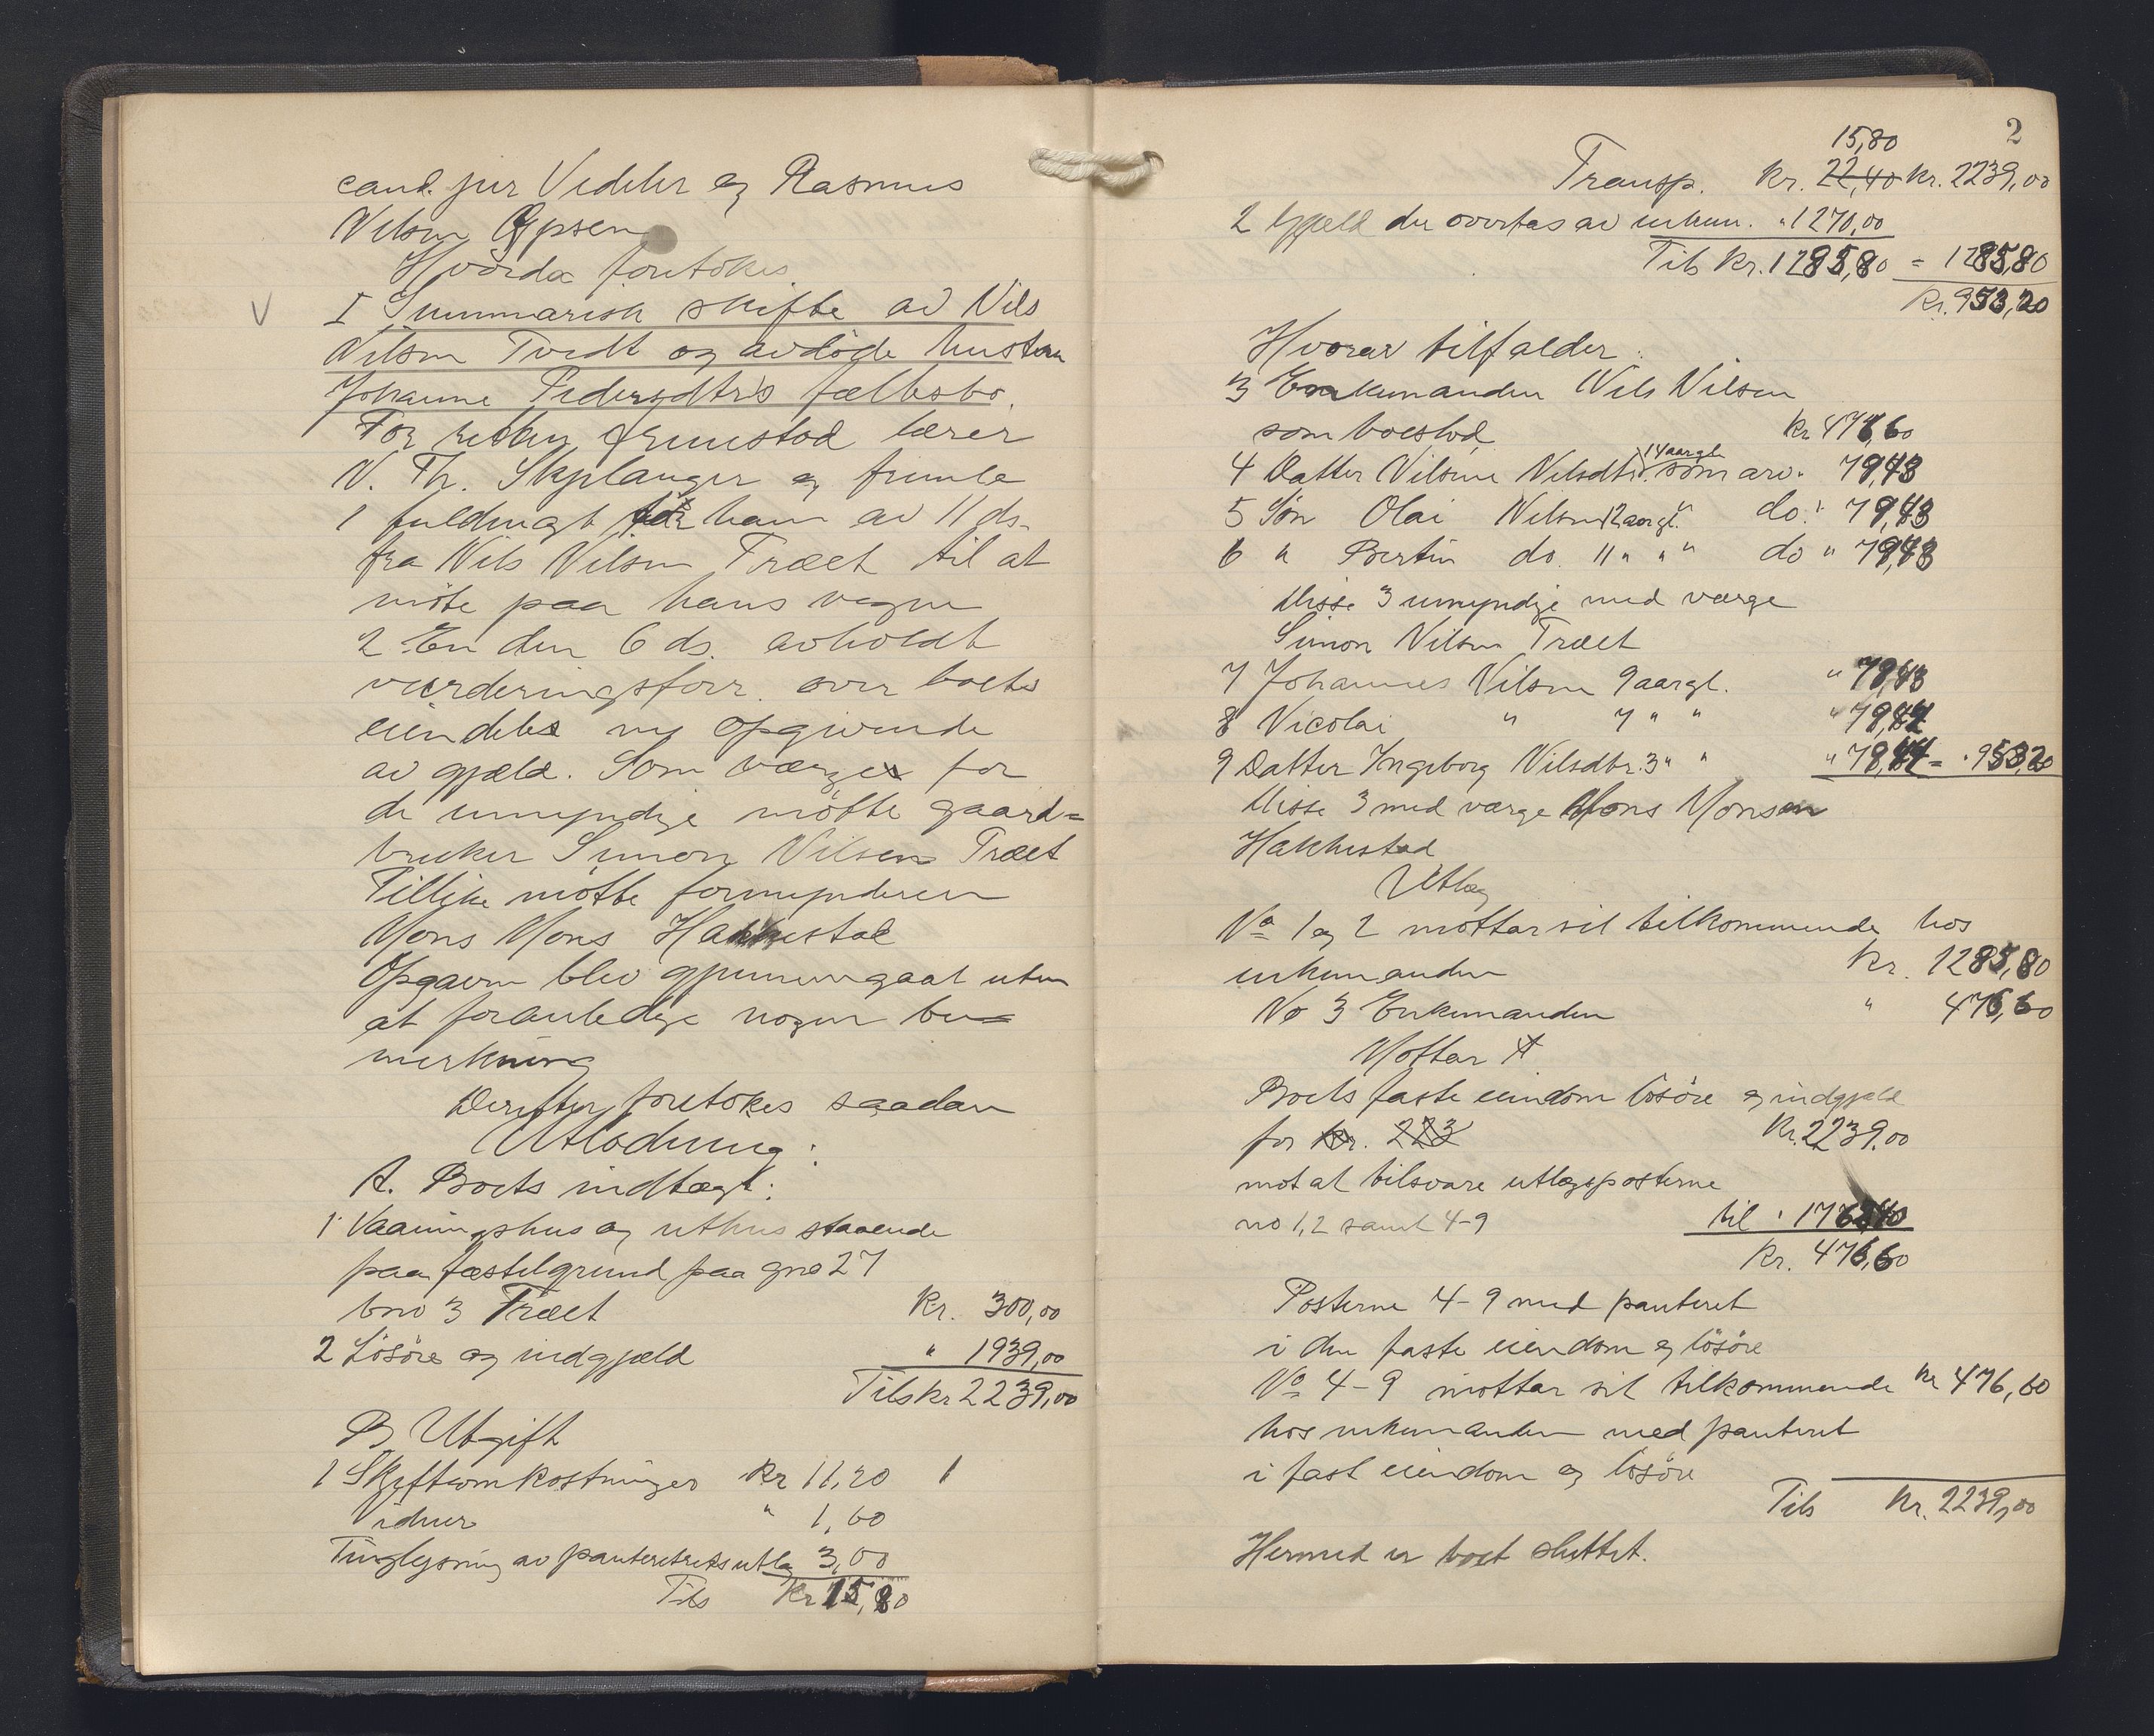 cand. jur Vedeler og Rasmus
Nilsen Gjpsen
Hvorda foretokes
V I Summarisk skifte av Nils
Nilsen Tvedt og avdöde hustru
Johanne Pedersdtr's fællesbo.
For retten fremstod lærer
N. Th. Skjelanger og fremla
1 fuldmagt for ham av 11 ds.
fra Nils Nilsen Træet til at
möte paa hans vegne
2 En den 6 ds. avholdt
vurderingsforr. over boets
eiendele og opgivende
av gjæld. Som værge for
de umyndige mötte gaard=
bruker Simon Nilsen Træet
Tillike mötte formynderen
Mons Mons Hakkestad
Opgaven blev gjennemgaat uten
at foranledige nogen be=
merkning
Derefter foretokes saadan
Utlodning:
A. Boets indtægt:
1 Vaaningshus og uthus staaende
paa fæstelgrund paa gno 27
bno 3 Træet Kr. 300,00
2 Lösöre og indgjæld " 1939,00
Tils kr 2239,00
B Utgift
1 Skifteomkostninger Kr 11,20
Vidner " 1,60
Tinglysning av panteretsutlæg 3,00
Tils Kr 15,80
2
15,80
Transp. Kr. 22,40 Kr. 2239,00
2 Gjæld der overtas av enkem. " 1270,00
Tils Kr. 1285,80 = 1285,80
Kr. 953,20
Hvorav tilfalder:
3 Enkemanden Nils Nilsen
som boeslod Kr 476,60
4 Datter Nilsine Nilsdtr. 14 aargl. som arv " 79,43
5 Sön Olai Nilsen 12 aargl. " do. " 79,43
6 " Bertin do. 11 " " " do " 79,43
Disse 3 umyndige med værge
Simon Nilsen Træet
7 Johannes Nilsen 9 aargl. " 79,43
8 Nicolai " 7 " " " 79,44
9 Datter Ingeborg Nilsdtr. 3 " " " 79,44 = " 953,20
Disse 3 med værge Mons Monsen
Hakkestad
Utlæg
No 1 og 2 mottar sit tilkommende hos
enkemanden Kr. 1285,80
No 3 Enkemanden " 476,60
Mottar A
Boets faste eiendom lösöre og indgjæld
for Kr. 223 Kr. 2239,00
mot at tilsvare utlægsposterne
no 1,2 samt 4-9 til " 1762,40
Kr. 476,60
Posterne 4-9 med panteret
i den faste eiendom og lösöre
No 4-9 mottar sit tilkommende kr 476,60
hos enkemanden med panteret
i fast eiendom og lösöre
Tils Kr. 2239,00
Hermed er boet sluttet.